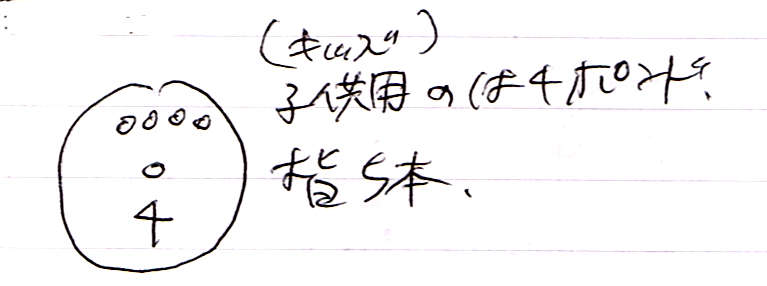 (キッズ)
子供用のは4ポンド、
指5本、
4